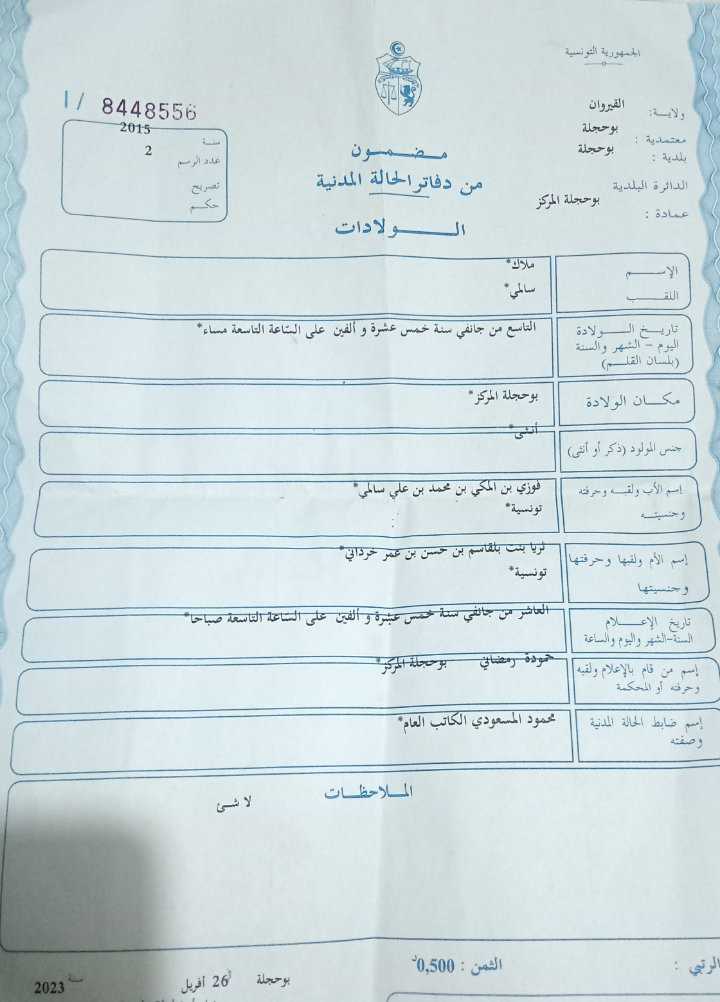 الجمهورية التونسية
ولاية: القيروان
معتمدية : بوحجلة
بلدية : بوحجلة
الدائرة البلدية
عمادة : بوحجلة المركز
مضمون
من دفاتر الحالة المدنية
الولادات
1/ 8448556
سنة 2015
عدد الرسم 2
تصريح
حكم
الإسم ملاك*
اللقب سالمي*
تاريخ الولادة
اليوم – الشهر والسنة
(بلسان القلم)
التاسع من جانفي سنة خمس عشرة و ألفين على السّاعة التاسعة مساء*
مكان الولادة بوحجلة المركز*
جنس المولود (ذكر أو أنثى) أنثى*
إسم الأب ولقبه وحرفته فوزي بن المكي بن محمد بن علي سالمي*
وجنسيته تونسية*
إسم الأم ولقبها وحرفتها ثريا بنت بلقاسم بن حسن بن عمر خرداني*
وجنسيتها تونسية*
تاريخ الإعلام
السنة-الشهر واليوم والساعة
العاشر من جانفي سنة خمس عشرة و ألفين على السّاعة التاسعة صباحا*
إسم من قام بالإعلام ولقبه
وحرفته أو المحكمة
حمودة رمضاني بوحجلة المركز*
إسم ضابط الحالة المدنية
وصفته
محمود المسعودي الكاتب العام*
الملاحظات
لا شئ
الثمن : 0,500د
بوحجلة 26 أفريل سنة 2023